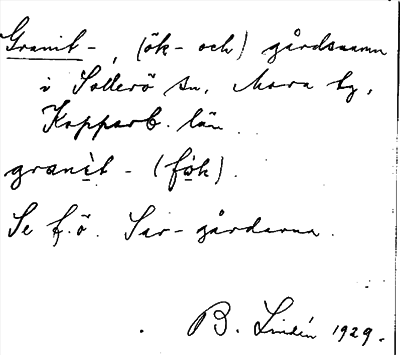 Granit-, (ök- och) gårdsnamn
i Sollerö sn, Mora tg,
Kopparb. län
granit - (fök).
Se f.ö. Sar-gårdarna.
B. Lindén 1929.